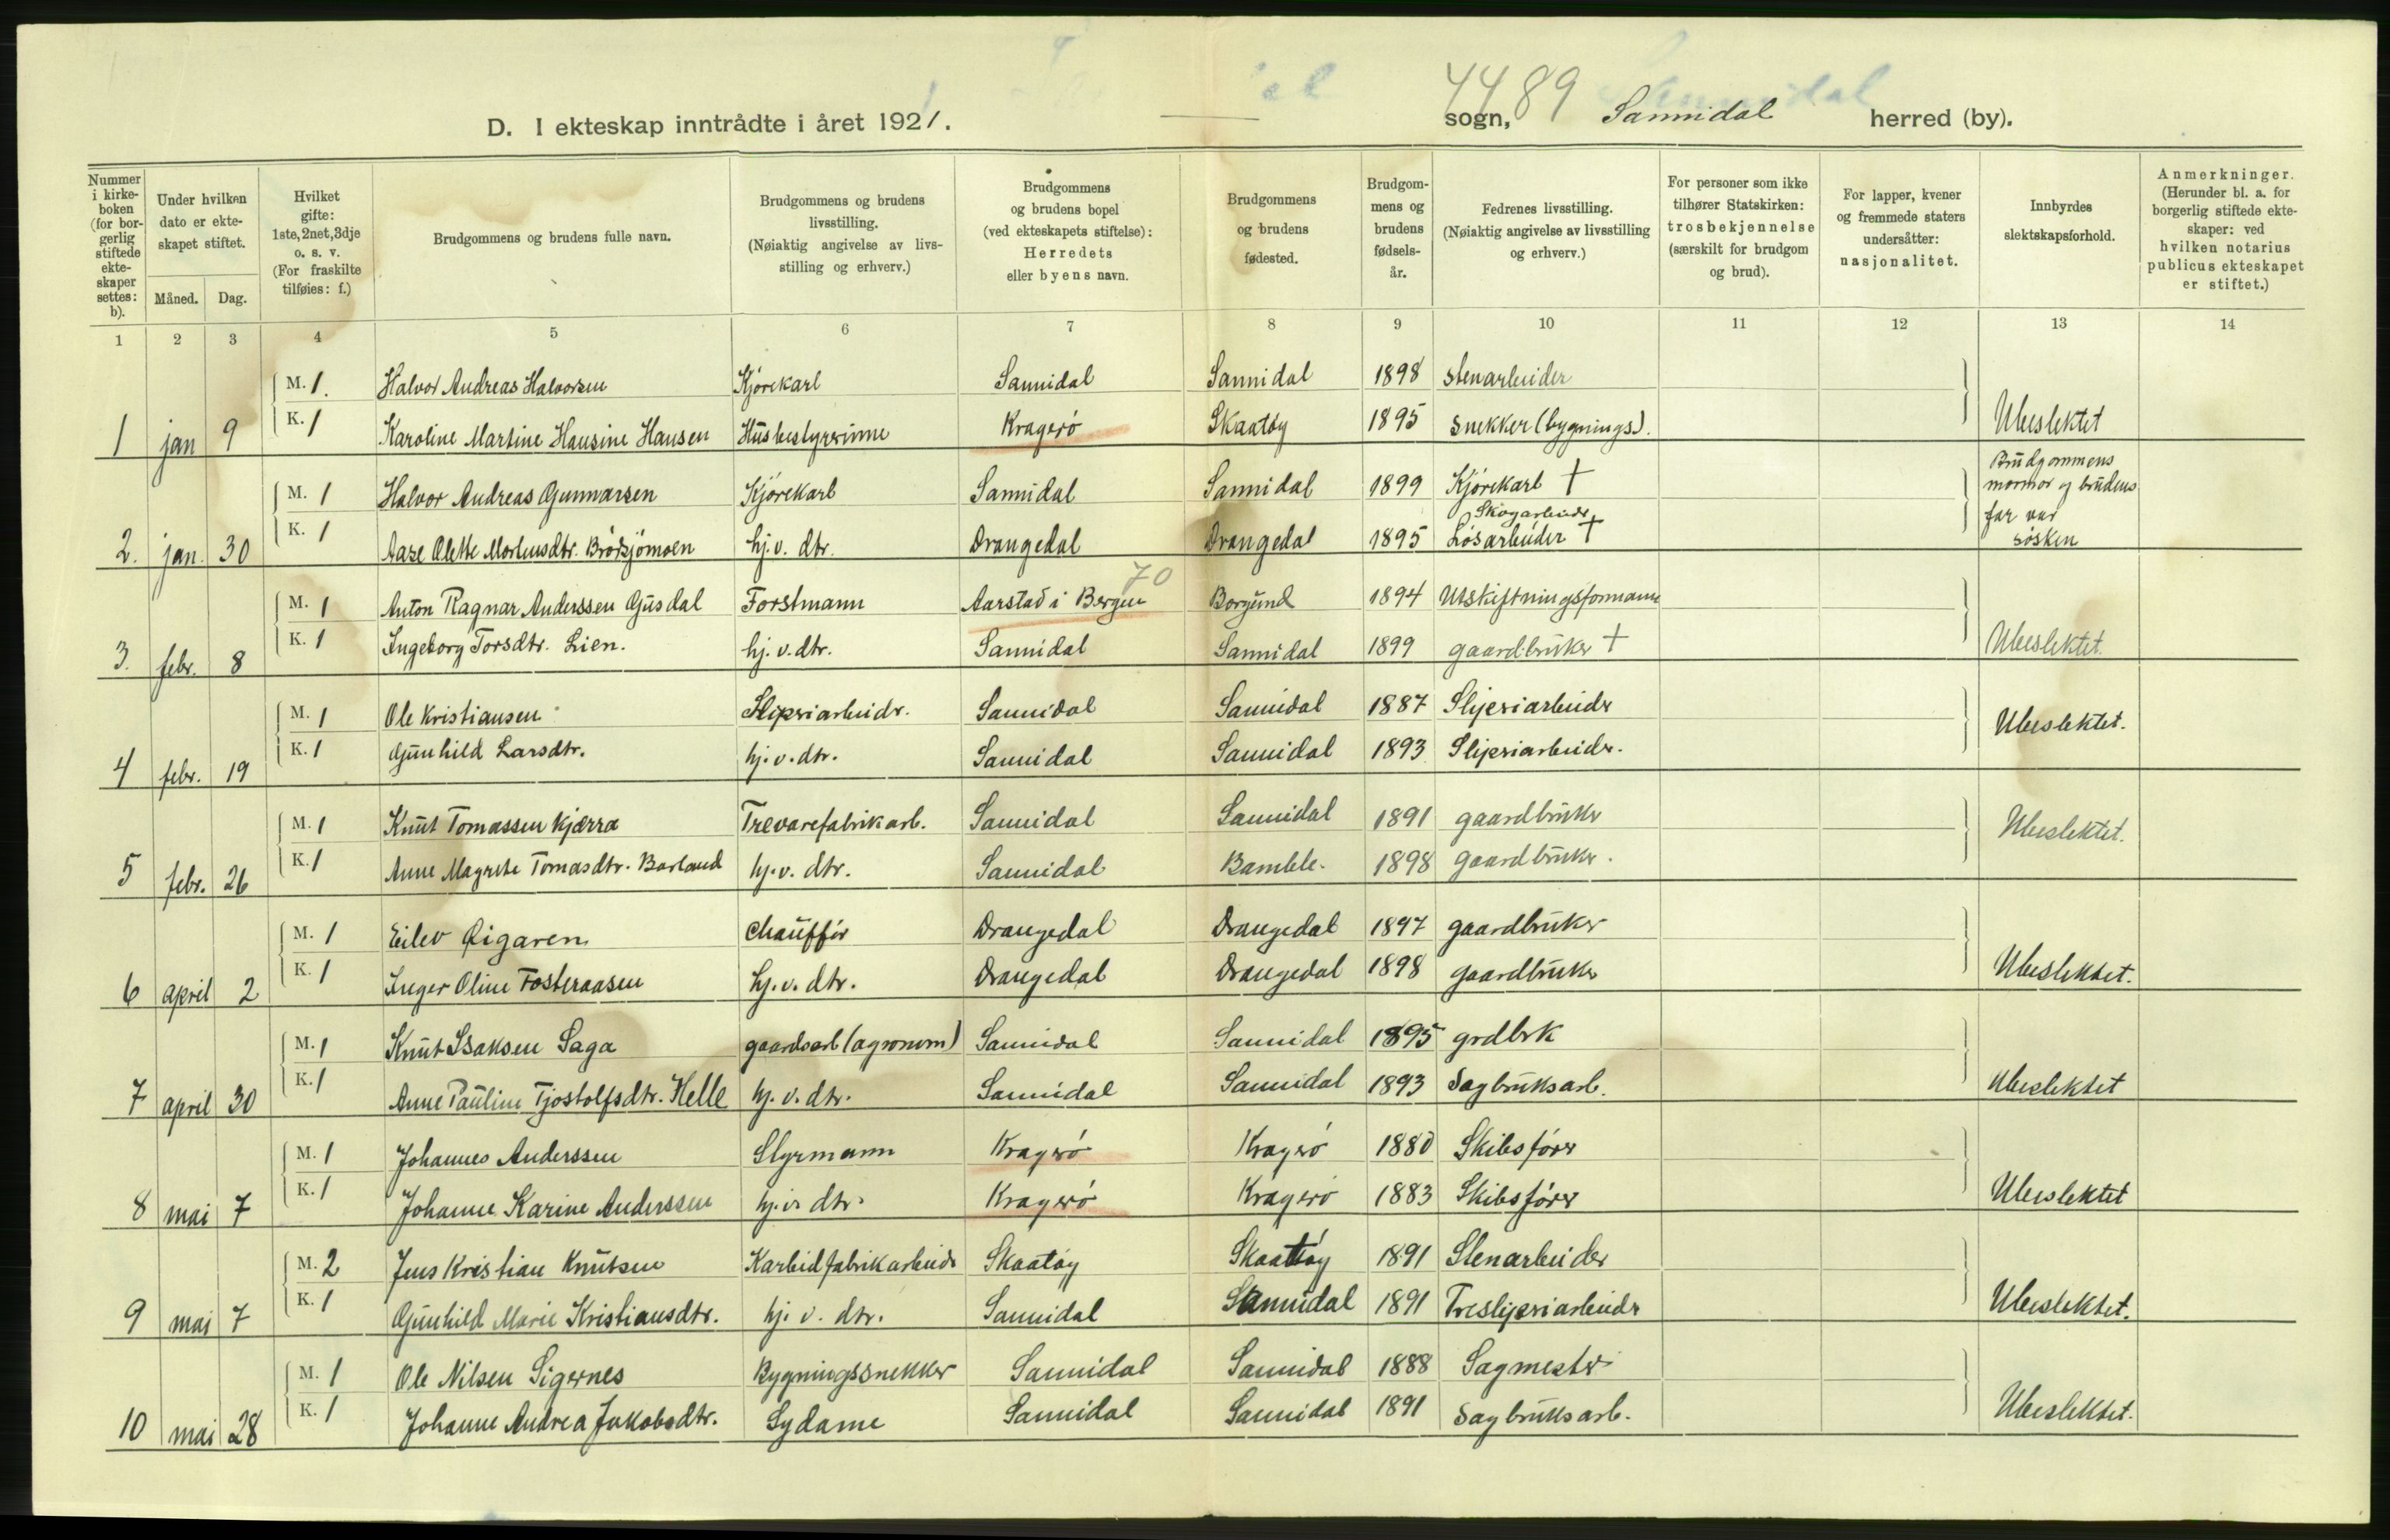 4489
D. I ekteskap inntrådte i året 1921. sogn, Sannidal herred (by).
Nummer i kirkeboken (for borgerlig stiftede ekteskaper settes: b).
Under hvilken dato er ekteskapet stiftet.
Måned. Dag.
Hvilket gifte: 1ste, 2net, 3dje o. s. v. (For fraskilte tilføies: f.)
Brudgommens og brudens fulle navn.
Brudgommens og brudens livsstilling. (Nøiaktig angivelse av livsstilling og erhverv.)
Brudgommens og brudens bopel (ved ekteskapets stiftelse): Herredets eller byens navn.
Brudgommens og brudens fødested.
Brudgommens og brudens fødselsår.
Fedrenes livsstilling. (Nøiaktig angivelse av livsstilling og erhverv.)
For personer som ikke tilhører Statskirken: trosbekjennelse (særskilt for brudgom og brud).
For lapper, kvener og fremmede staters undersåtter: nasjonalitet.
Innbyrdes slektskapsforhold.
Anmerkninger. (Herunder bl. a. for borgerlig stiftede ekteskaper: ved hvilken notarius publicus ekteskapet er stiftet.)
1 2 3 4 5 6 7 8 9 10 11 12 13 14
M. 1. Halvor Andreas Halvorsen Kjørekarl Sannidal Sannidal 1898 stenarbeider
1 jan 9 K. 1 Karoline Martine Hansine Hansen Husbestyrerinne Kragerø Skaatøy 1895 snekker (bygnings). Ubeslektet
M. 1 Halvor Andreas Gunnarsen Kjørekarl Sannidal Sannidal 1899 Kjørekarl † Brudgommens mormor og brudens far var søsken
Skogarbeider
2. jan. 30 K. 1 Aase Olette Mortensdtr. Brødsjømoen hj. v. dtr. Drangedal Drangedal 1895 Løsarbeider †
70
M. 1 Anton Ragnar Anderssen Gjusdal Forstmann Aarstad i Bergen Borgund 1894 Utskiftningsformann
3. febr. 8 K. 1 Ingeborg Torsdtr. Lien. hj. v. dtr. Sannidal Sannidal 1899 gaardbruker † Ubeslektet.
M. 1 Ole Kristiansen Sliperiarbeider. Sannidal Sannidal 1887 Sliperiarbeider
4 febr. 19 K. 1 Gunhild Larsdtr. hj. v. dtr. Sannidal Sannidal 1893 Sliperiarbeider. Ubeslektet.
M. 1 Knut Tomassen Kjærra Trevarefabrikarb. Sannidal Sannidal 1891 gaardbruker
5 febr. 26 K. 1 Anne Magrete Tomasdtr. Barland hj. v. dtr. Sannidal Bamble. 1898 gaardbruker. Ubeslektet.
M. 1 Eilev Øigaren chauffør Drangedal Drangedal 1897 gaardbruker
6 april 2 K. 1 Inger Oline Fosteraasen hj. v. dtr. Drangedal Drangedal 1898 gaardbruker Ubeslektet.
M. 1 Knut Isaksen Saga gaardsarb (agronom) Sannidal Sannidal 1895 grdbrk
7 april 30 K. 1 Anne Pauline Tjostolfsdtr. Helle hj. v. dtr. Sannidal Sannidal 1893 Sagbruksarb. Ubeslektet
M. 1 Johannes Anderssen Styrmann Kragerø Kragerø 1880 Skibsfører
8 mai 7 K. 1 Johanne Karine Anderssen hj. v. dtr. Kragerø Kragerø 1883 Skibsfører Ubeslektet
M. 2 Jens Kristian Knutsen Karbidfabrikarbeider Skaatøy Skaatøy 1891 Stenarbeider
9 mai 7 K. 1 Gunhild Marie Kristiansdtr. hj. v. dtr. Sannidal Sannidal 1891 Tresliperiarbeider Ubeslektet.
M. 1 Ole Nilsen Sigernes Bygningssnekker Sannidal Sannidal 1888 Sagmester
10 mai 28 K. 1 Johanne Andrea Jakobsdtr. Sydame Sannidal Sannidal 1891 Sagbruksarb. Ubeslektet.